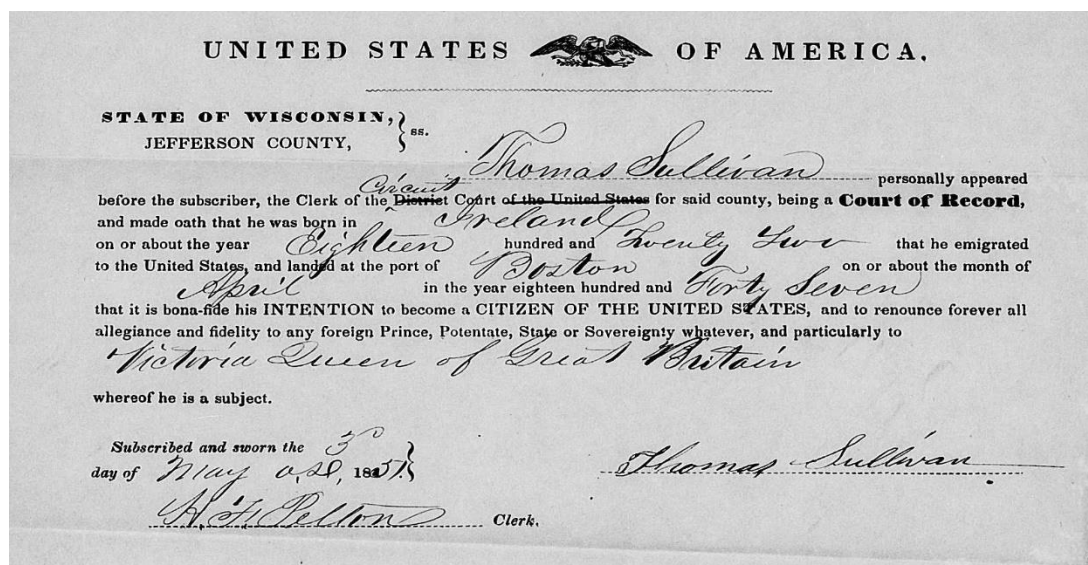 UNITED STATES OF AMERICA.
STATE OF WISCONSIN,
JEFFERSON COUNTY, } ss.
Thomas Sullivan personally appeared
Circuit
before the subscriber, the Clerk of the District Court of the United States for said county, being a Court of Record,
and made oath that he was born in Ireland
on or about the year Eighteen hundred and Twenty Two that he emigrated
to the United States, and landed at the port of Boston on or about the month of
April in the year eighteen hundred and Forty Seven
that it is bona-fide his INTENTION to become a CITIZEN OF THE UNITED STATES, and to renounce forever all
allegiance and fidelity to any foreign Prince, Potentate, State or Sovereignty whatever, and particularly to
Victoria Queen of Great Britain
whereof he is a subject.
Subscribed and sworn the 3
day of May 1851.
Thomas Sullivan
H. F. Pelton Clerk.